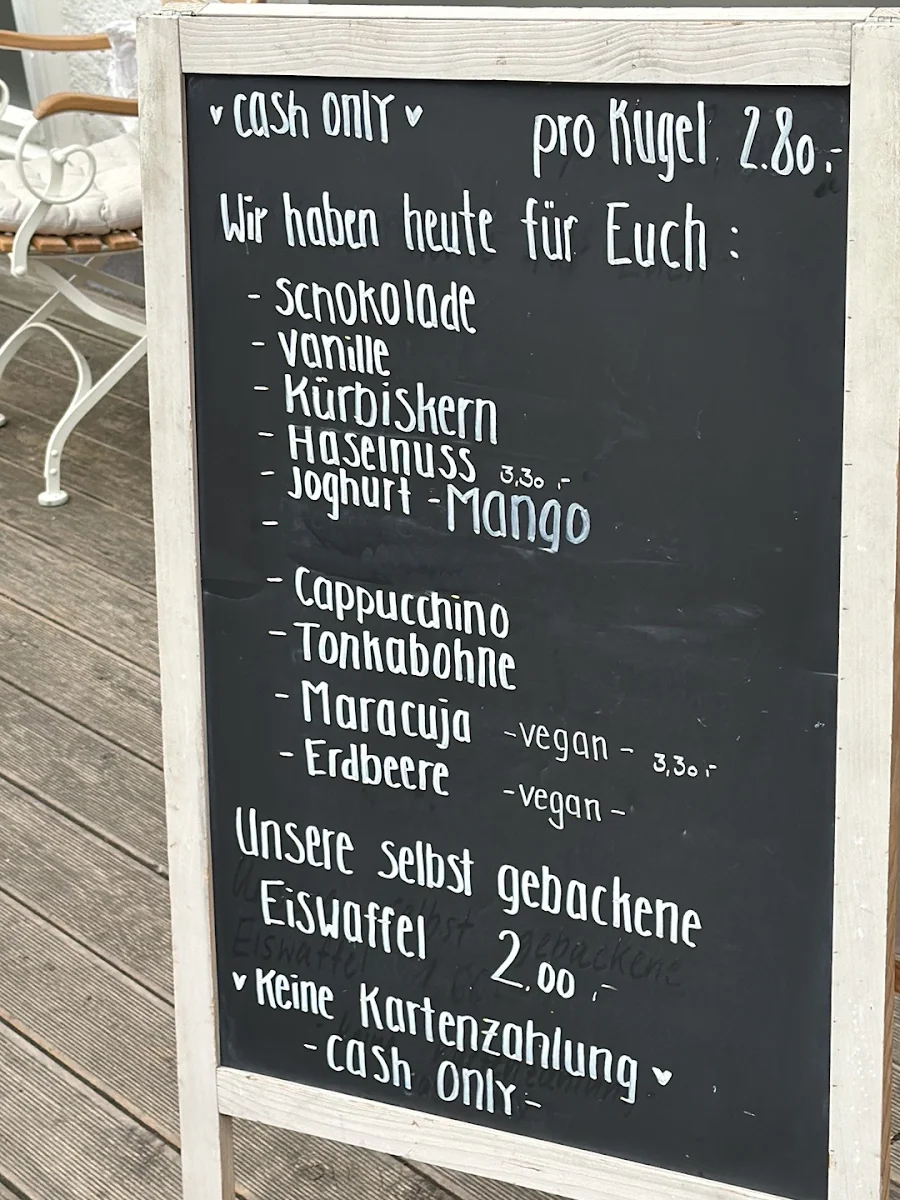 ♥ cash only ♥
pro Kugel 2.80,-
Wir haben heute für Euch :
- Schokolade
- Vanille
- Kürbiskern
- Haselnuss 3,30 ,-
- Joghurt - Mango
-
- Cappucchino
- Tonkabohne
- Maracuja - vegan - 3,30 ,-
- Erdbeere - vegan -
Unsere selbst gebackene
Eiswaffel 2.00 ,-
♥ Keine Kartenzahlung ♥
- cash only -